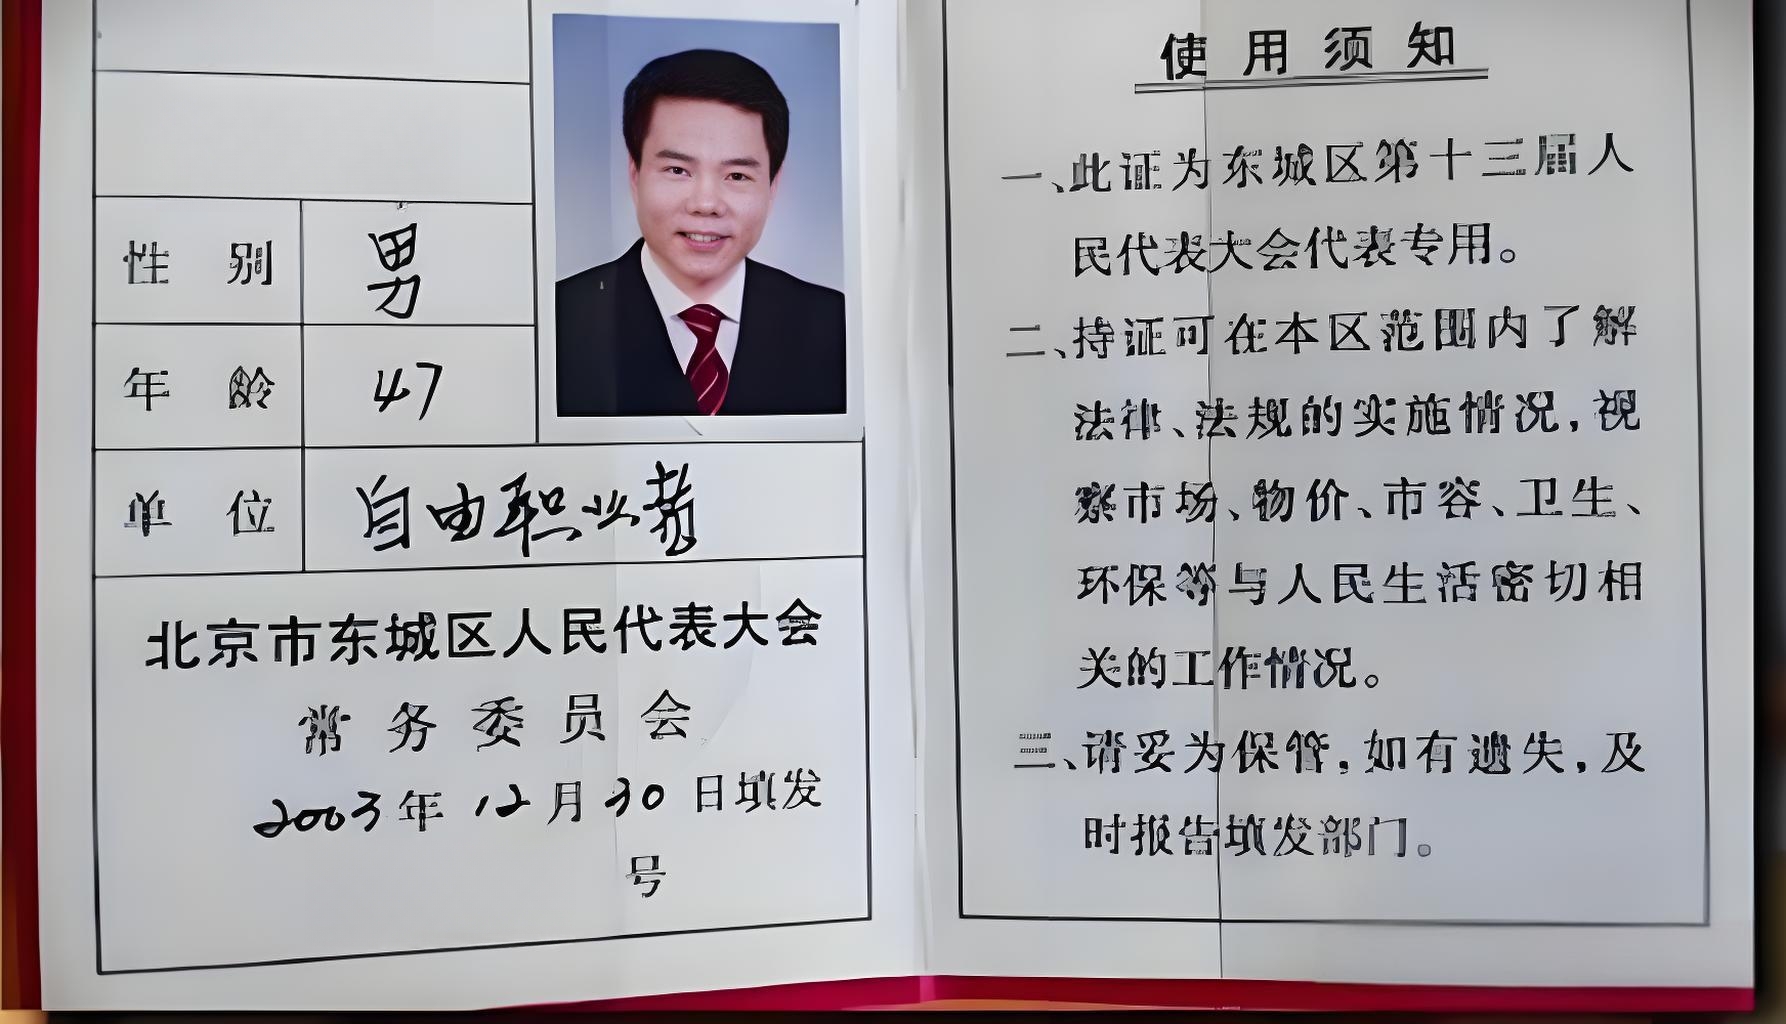 性别 男
年龄 47
单位 自由职业者
北京市东城区人民代表大会
常务委员会
2003年12月30日填发
号
使用须知
一、此证为东城区第十三届人
民代表大会代表专用。
二、持证可在本区范围内了解
法律、法规的实施情况,视
察市场、物价、市容、卫生、
环保等与人民生活密切相
关的工作情况。
三、请妥为保管,如有遗失,及
时报告填发部门。